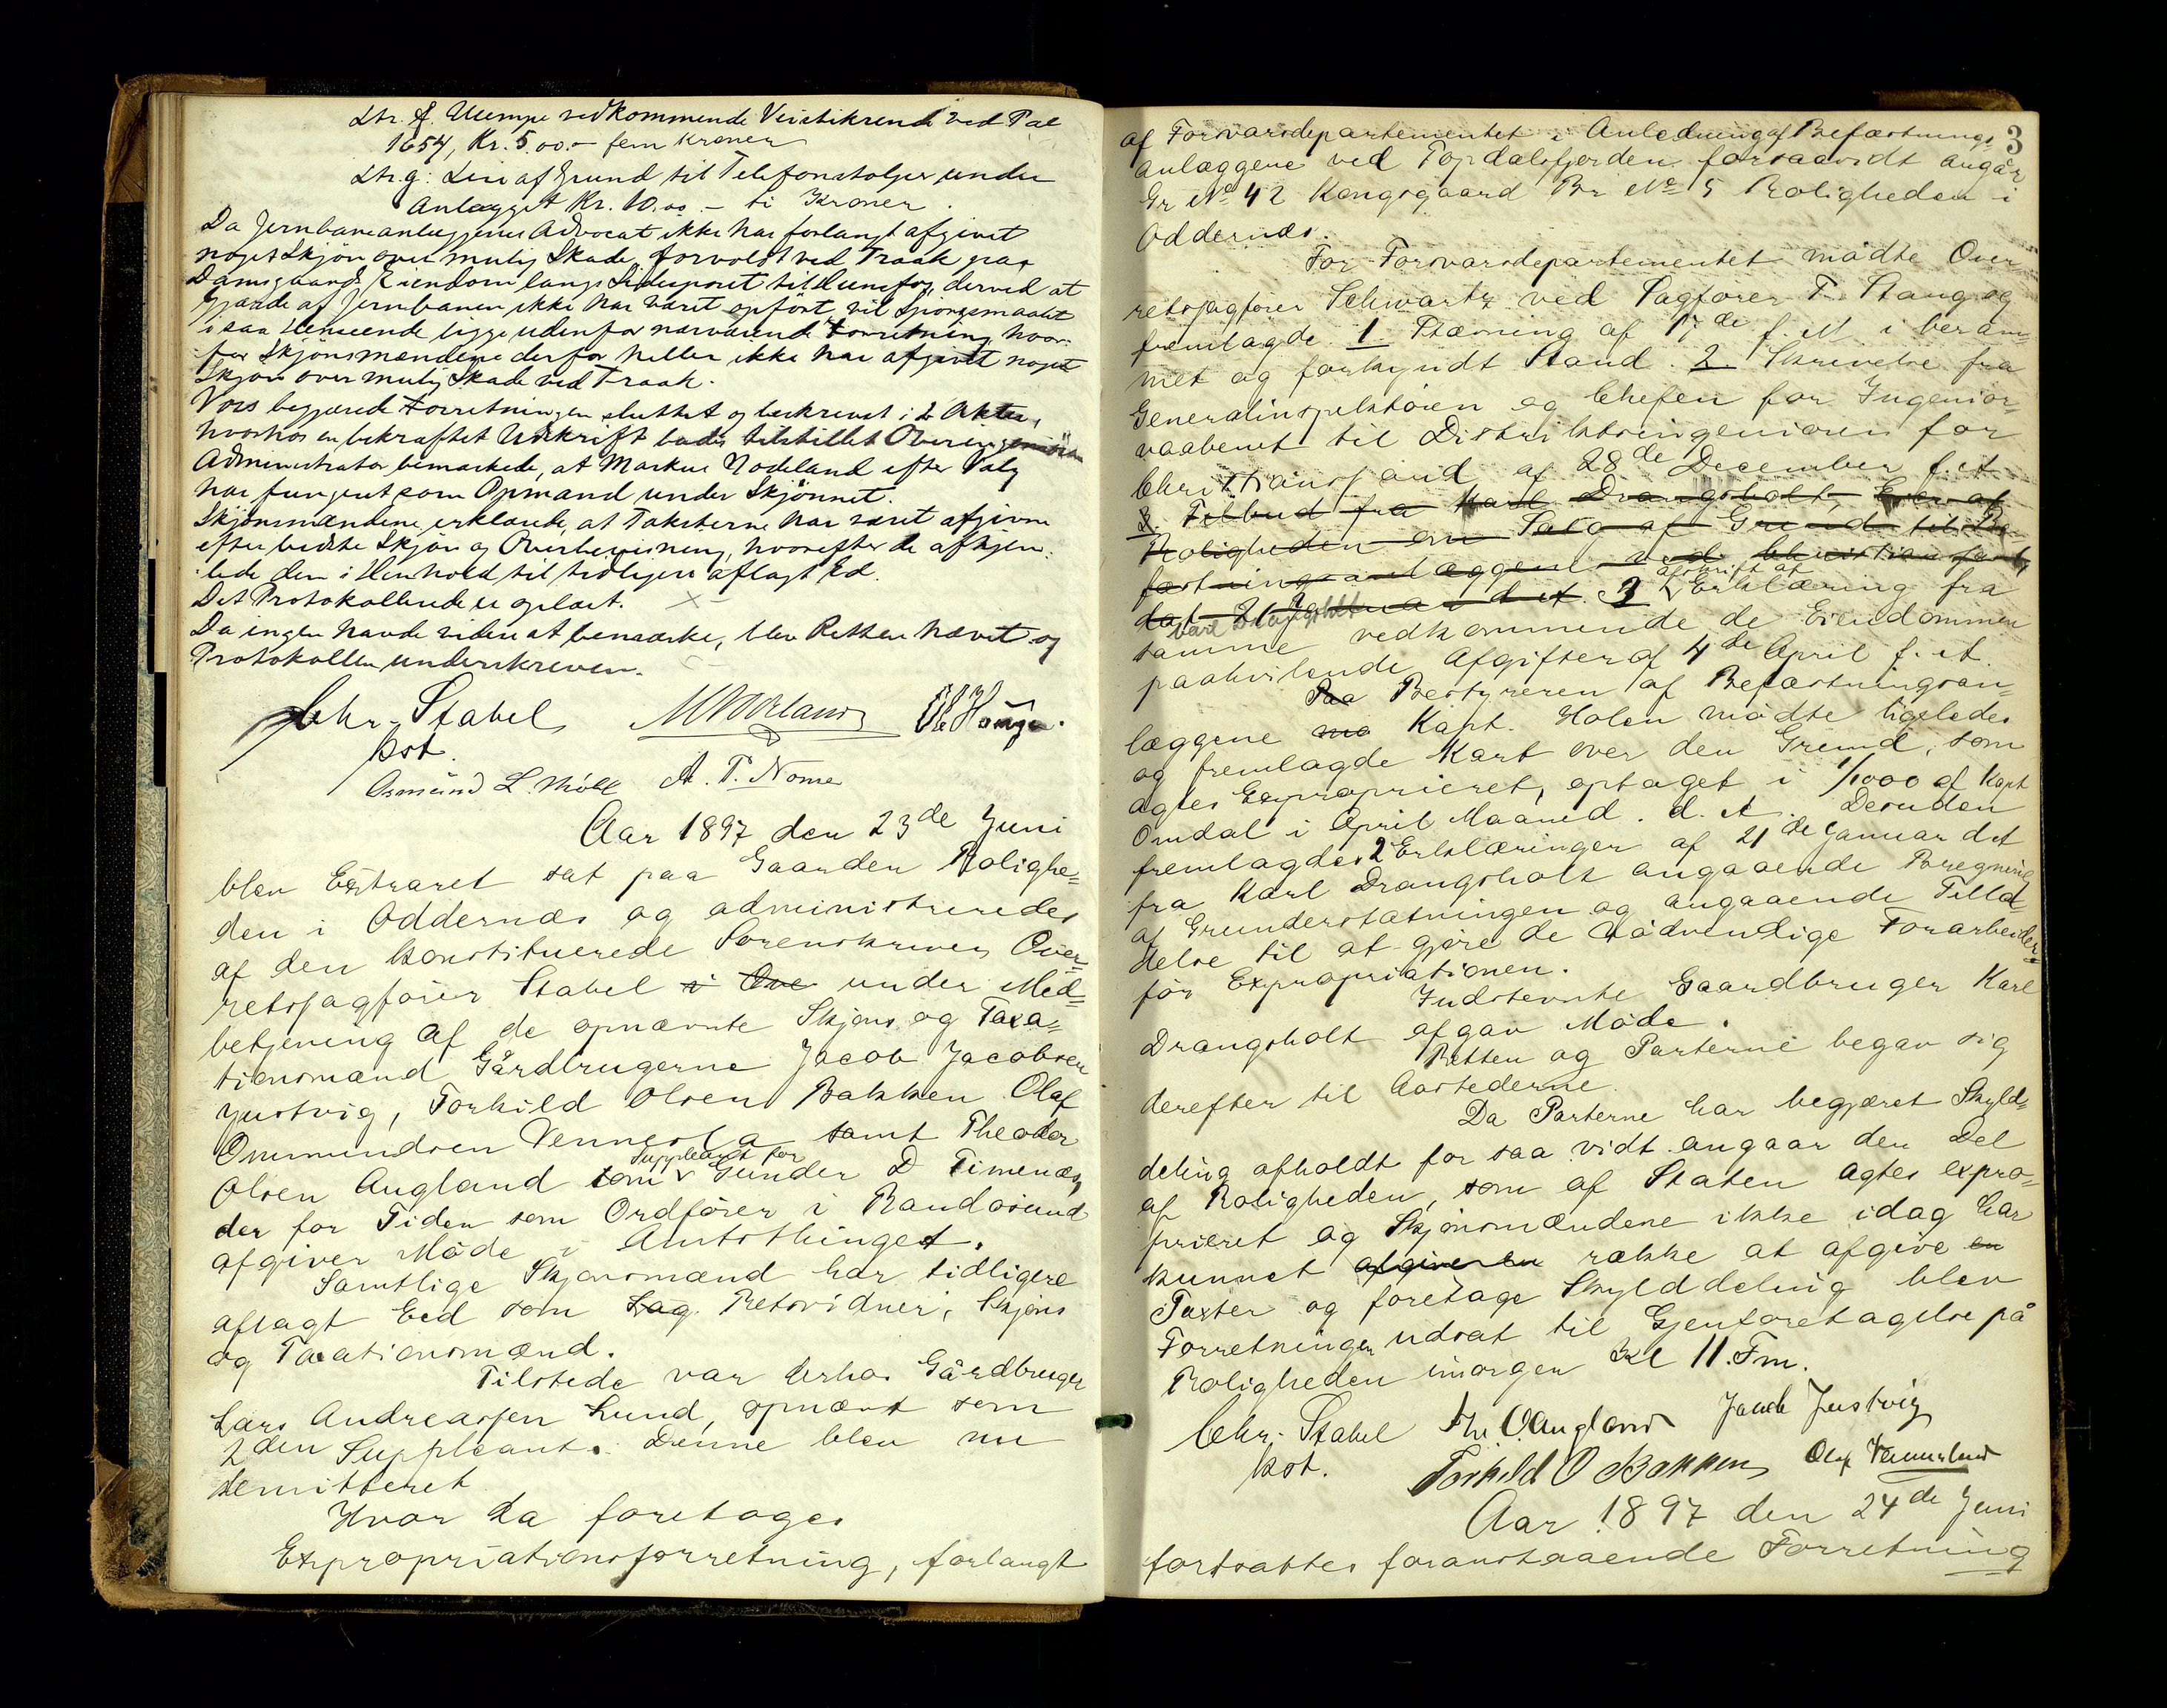 Ltr. f. Ulempe vedkommende Veistikrende ved Pæl
1654, Kr. 5.00 - fem Kroner
Ltr. g: Leie af Grund til Telefonstolper under
Anlægget Kr. 10.00 - ti Kroner.
Da Jernbaneanlæggenes Advocat ikke har forlangt afgivet
noget Skjøn over mulig Skade, forvoldt ved Traak paa
Damsgaards Eiendom langs Sidesporet til derved at
Gjærde af Jernbanen ikke har været opført, vil Spørgsmaalet
i saa Henseende ligge udenfor nærværende Forretning, hvor-
for Skjønsmændene derfor heller ikke har afgivet noget
Skjøn over mulig Skade ved Traak.
Vors begjærede Forretningen sluttet og beskrevet i 2 Akter,
hvorhos en bekræftet Udskrift bedes tilstillet Overingeniøren
Administrator bemærkede, at Markus Nodeland efter Valg
har fungert som Opmand under Skjønnet.
Skjønsmændene erklærede, at Taksterne har været afgivne
efter bedste Skjøn og Overbevisning, hvorefter de afhjem-
lede dem i Henhold til tidligere aflagt Ed.
Det Protokollerede er oplæst.
Da ingen havde videre at bemærke, blev Retten hævet og
Protokollen underskreven.
Chr. Stabel
kst.
A. T. Nome
Aar 1897 den 23de Juni
blev Extraret sat paa Gaarden Rolighe=
den i Oddernæs og administreredes
af den konstituerede Sorenskriver Over=
retssagfører Stabel i Ove under Med=
betjening af de opnævnte Skjøns og Taxa=
tionsmænd Gårdbrugerne Jacob Jacobsen
Justvig, Torkild Olsen Bakken Olaf
Ommundsen Vennesla samt Theodor
Olsen Augland som Suppleant for Gunder D Timenæs,
der for Tiden som Ordfører i Randøsund
afgiver Møde i Amtsthinget.
Samtlige Skjønsmænd har tidligere
aflagt Eed som Lag. Retsvidner, Skjøns
og Taxationsmænd.
Tilstede var derhos Gårdbruger
Lars Andreassen Lund, opnævnt som
2den Suppleant. Denne blev nu
demitteret
Hvor da foretoges
Expropriationsforretning, forlangt
3
af Forsvarsdepartementet i Anledning af Befæstnings-
anlæggene ved Topdalsfjorden forsaavidt angår
Gr No 42 Kongsgaard Br No 5 Roligheden i
Oddernæs.
For Forsvarsdepartementet mødte Over
retssagfører Schwartz ved Sagfører T. Stang og
fremlagde 1. Stævning af 17de f. M. i beram
met og forkyndt Stand. 2 Skrivelse fra
Generalinspektøren og Chefen for Ingeniør-
vaabenet til Distriktsingeniøren for
Christianssand af 28de December f. A
3. Tilbud fra Karl Drangsholt, Eier af
Roligheden om Salg af Grund til Be
fæstningsanlæggene ved Christianssand,
dat 21 Januar d. A. 3 afskrift af Erklæring fra
Karl Drangsholt
samme vedkommende de Eiendommen
paahvilende Afgifter af 4de April f. A.
Paa Bestyreren af Befæstningsan-
læggene mø Kapt. Holen mødte ligeledes
og fremlagde Kart over den Grund, som
agtes Exproprieret, optaget i 1/1000 af Kapt
Omdal i April Maaned. d. A. Desuden
fremlagdes 2 Erklæringer af 21de Januar d A
fra Karl Drangsholt angaaende Beregning
af Grunderstatningen og angaaende Tilla-
delse til at gjøre de nødvendige Forarbeider
før Expropriationen.
Indstevnte Gaardbruger Karl
Drangsholt afgav Møde.
Retten og Parterne begav sig
derefter til Aastederne.
Da Parterne har begjæret Skyld-
deling afholdt for saa vidt angaar den Del
af Roligheden, som af Staten agtes expro-
prieret og Skjønsmændene ikke idag har
kunnet afgive en række at afgive en
Taxter og foretage Skylddeling blev
Forretningen udsat til Gjenforetagelse på
Roligheden imorgen Kl 11. Fm.
Chr. Stabel Th. O. Augland Jacob Justvig
kst. Torkild O Bakken
Aar 1897 den 24de Juni
fortsattes foranstaaende Forretning